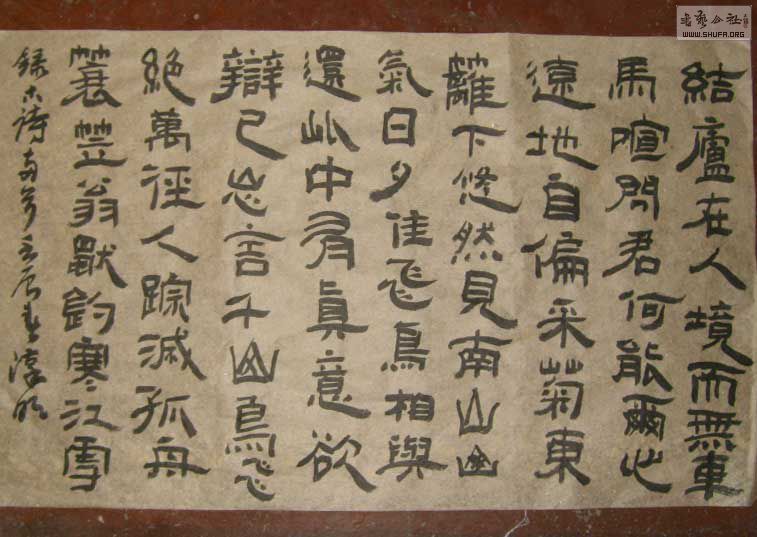 結廬在人境而無車
馬喧問君何能爾心
遠地自偏采菊東
籬下悠然見南山山
氣日夕佳飛鳥相與
還此中有眞意欲
辯已忘言千山鳥飛
絕萬徑人踪滅孤舟
蓑笠翁獸釣寒江雪
録古詩两首壬辰春
书艺公社
WWW.SHUFA.ORG